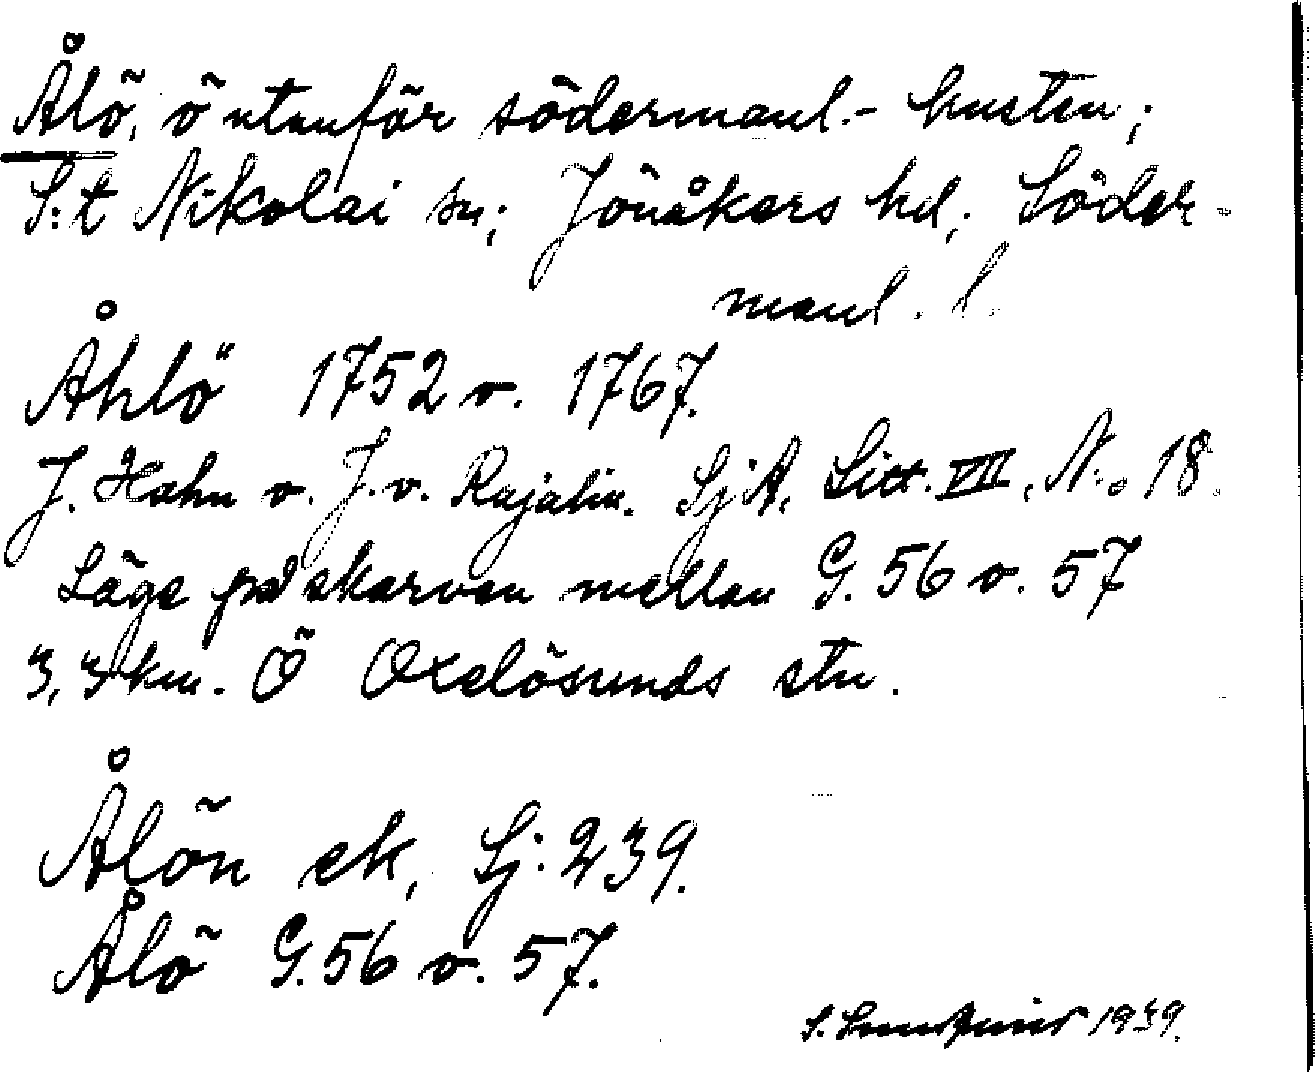 Ålö, ö utanför södermanl.- kusten;
S:t Nikolai sn; Jönåkers hd; Söder-
manl. l.
Åhlö 1752 o. 1767.
J. Hahn o. J. v. Rajalin. SjA, Litt. VII, N:o 18.
Läge på skarven mellan G. 56 o. 57
3,3 km. Ö Oxelösunds stn.
Ålön ek, Sj: 239.
Ålö G. 56 o. 57.
S. 1939.